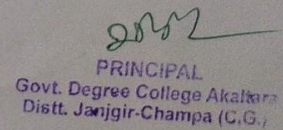 PRINCIPAL
Govt. Degree College Akaltara
Distt. Janjgir-Champa (C.G.)